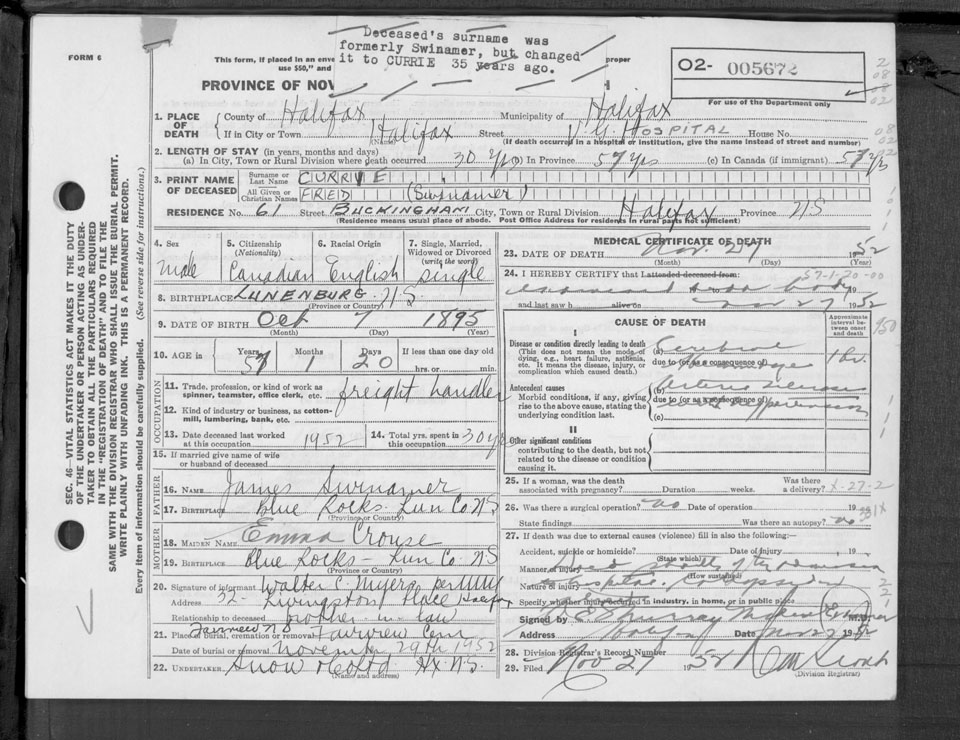 Deceased's surname was
formerly Swinamer, but changed
it to CURRIE 35 years ago.
FORM 6
This form, if placed in an enve
use $50," and
roper
PROVINCE OF NOV
O2- 005672
For use of the Department only
1. PLACE OF DEATH
County of Halifax Municipality of Halifax
If in City or Town Halifax Street V.G. HOSPITAL House No.
(Name) (If death occurred in a hospital or institution, give the name instead of street and number)
2. LENGTH OF STAY (in years, months and days)
(a) In City, Town or Rural Division where death occurred 30 yrs In Province 57 yrs (c) In Canada (if immigrant) 57 yrs
3. PRINT NAME OF DECEASED
Surname or Last Name CURRIE
All Given or Christian Names FRED (Swinamer)
RESIDENCE No. 61 Street BUCKINGHAM City, Town or Rural Division Halifax Province NS
(Residence means usual place of abode. Post Office Address for residents in rural parts not sufficient)
4. Sex
male
5. Citizenship (Nationality)
Canadian
6. Racial Origin
English
7. Single, Married, Widowed or Divorced (write the word)
single
8. BIRTHPLACE LUNENBURG NS.
(Province or Country)
9. DATE OF BIRTH Oct 7 1895
(Month) (Day) (Year)
10. AGE in Years 57 Months 1 Days 20 If less than one day old
hrs. or min.
OCCUPATION
11. Trade, profession, or kind of work as spinner, teamster, office clerk, etc. freight handler
12. Kind of industry or business, as cotton-mill, lumbering, bank, etc.
13. Date deceased last worked at this occupation 1952
14. Total yrs. spent in this occupation 30 yrs
15. If married give name of wife or husband of deceased
FATHER
16. NAME James Swinamer
17. BIRTHPLACE Blue Rocks Lun Co NS
(Province or Country)
MOTHER
18. MAIDEN NAME Emma Crouse
19. BIRTHPLACE Blue Rocks - Lun Co. NS
(Province or Country)
20. Signature of informant Walter C. Myers per
Address 32 Livingston Place Halifax
Relationship to deceased brother in law
21. Place of burial, cremation or removal Fairview Cem
Fairview NS
Date of burial or removal November 29th 1952
22. UNDERTAKER Snow & Co Ltd Hx N.S.
(Name and address)
MEDICAL CERTIFICATE OF DEATH
23. DATE OF DEATH Nov. 27 1952
(Month) (Day) (Year)
24. I HEREBY CERTIFY that I attended deceased from:
57-1-20-00
and last saw h alive on Nov 27 1952
CAUSE OF DEATH
Approximate interval between onset and death
I
Disease or condition directly leading to death
(This does not mean the mode of dying, e.g., heart failure, asthenia, etc. It means the disease, injury, or complication which caused death.)
(a) Cerebral
due to (or as a consequence of)
1 hr.
Antecedent causes
Morbid conditions, if any, giving rise to the above cause, stating the underlying condition last.
(b)
due to (or as a consequence of)
(c)
II
Other significant conditions
contributing to the death, but not related to the disease or condition causing it.
25. If a woman, was the death associated with pregnancy? Duration weeks. Was there a delivery? X-27-2
26. Was there a surgical operation? no Date of operation 19
State findings Was there an autopsy? no
27. If death was due to external causes (violence) fill in also the following:-
Accident, suicide or homicide? Date of injury , 19
(State which)
Manner of injury
(How sustained)
Nature of injury
Specify whether injury occurred in industry, in home, or in public place
Signed by E Murray
M.D.
Address Halifax Date Nov 27 1952
28. Division Registrar's Record Number
29. Filed Nov 27 1952
(Division Registrar)
SEC. 46—VITAL STATISTICS ACT MAKES IT THE DUTY
OF THE UNDERTAKER OR PERSON ACTING AS UNDER-
TAKER TO OBTAIN ALL THE PARTICULARS REQUIRED
IN THE "REGISTRATION OF DEATH" AND TO FILE THE
SAME WITH THE DIVISION REGISTRAR WHO SHALL ISSUE THE BURIAL PERMIT.
WRITE PLAINLY WITH UNFADING INK. THIS IS A PERMANENT RECORD.
Every item of information should be carefully supplied. (See reverse side for instructions.)